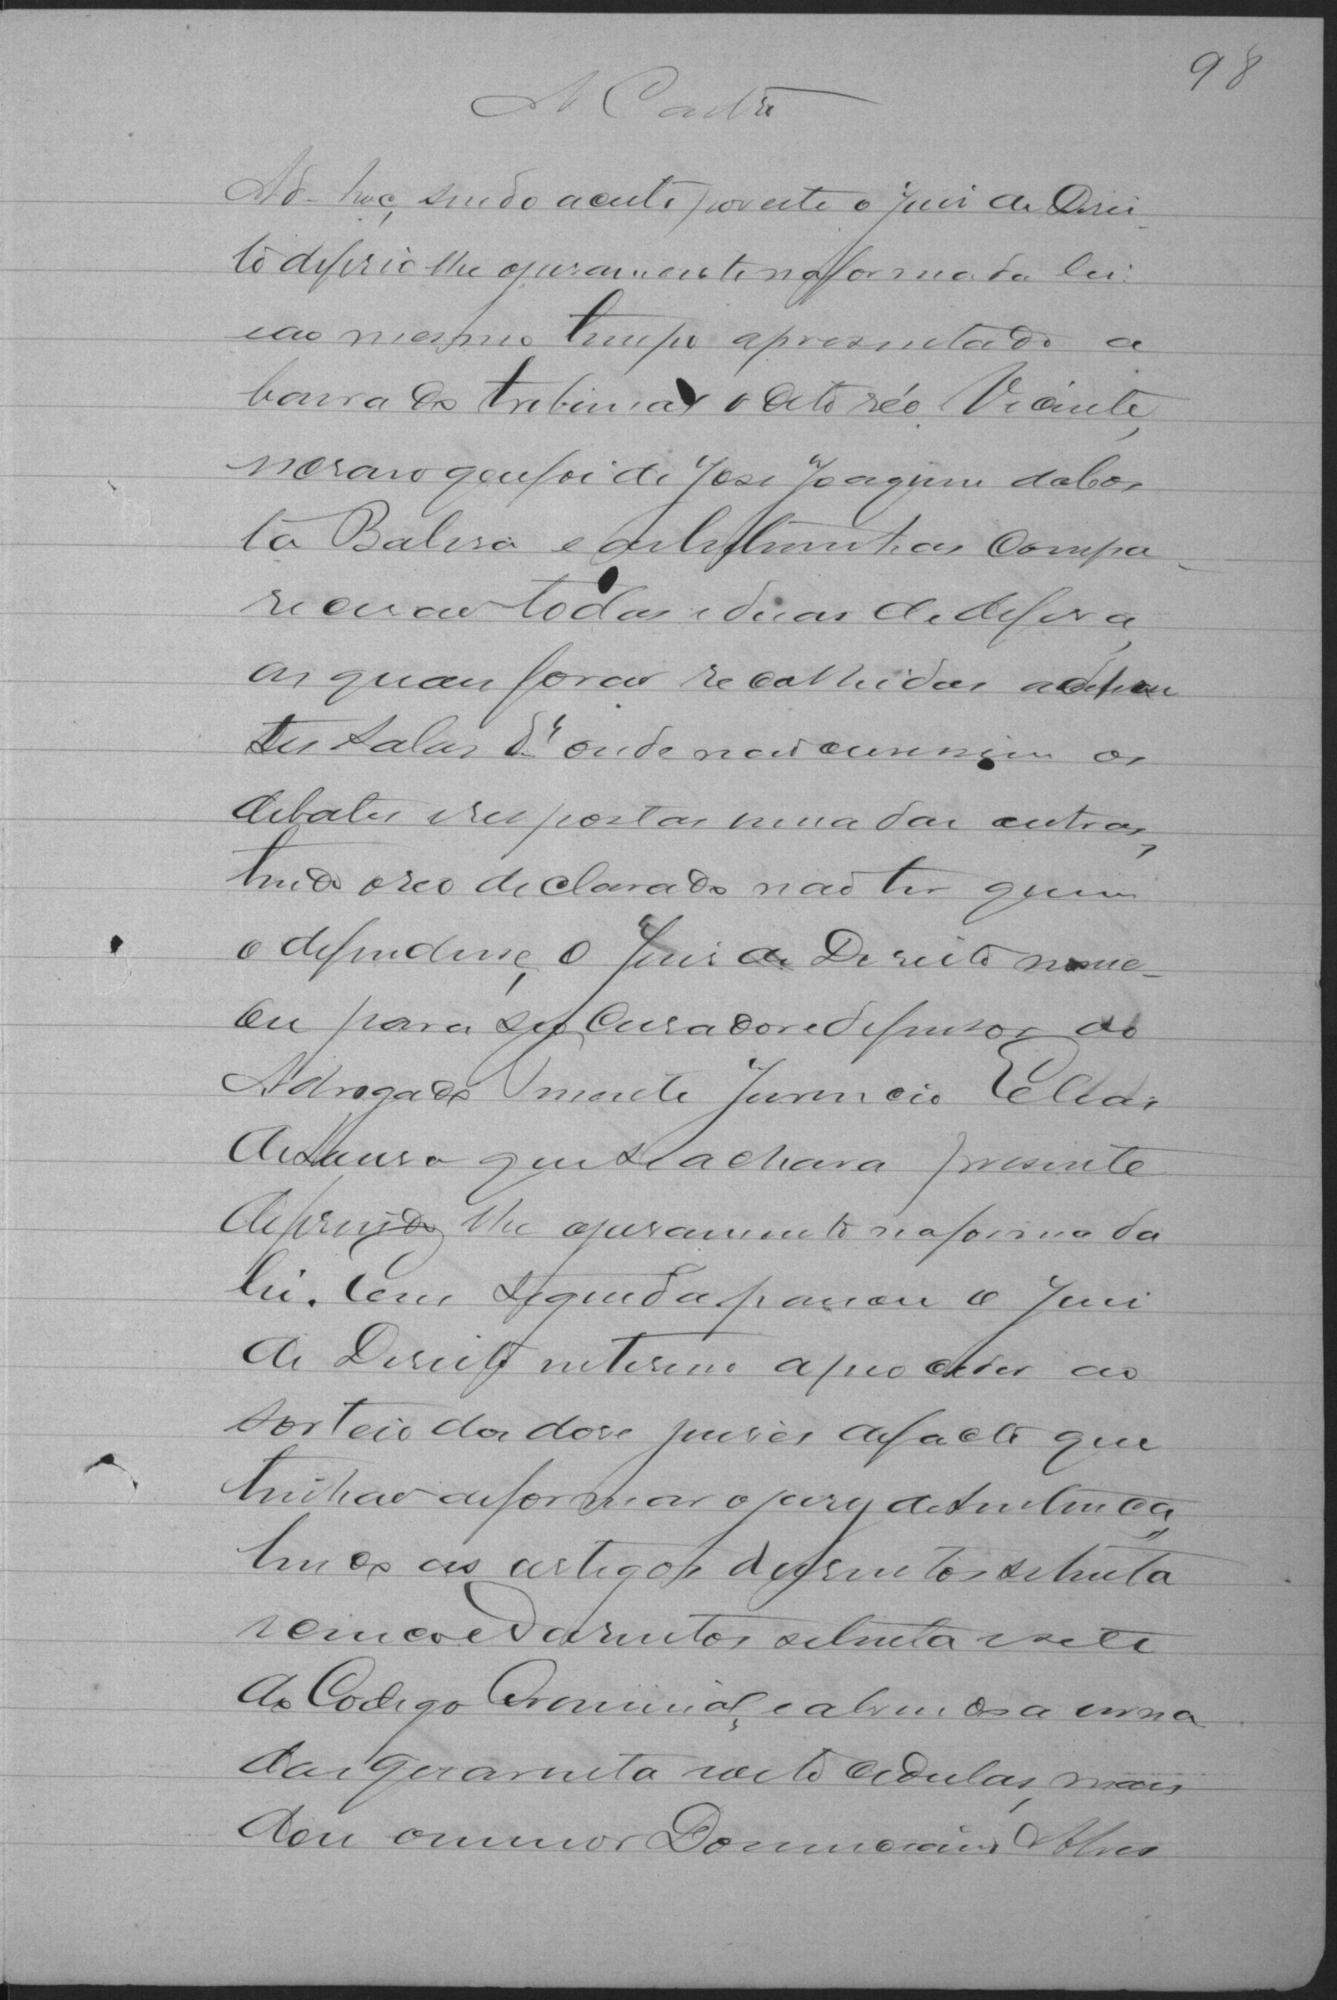 98
A Castro
Ad-hoc, sendo aceite por este o Juiz de Direi-
to deferio lhe o juramento na forma da lei:
e ao mesmo tempo apresentado a
barra do tribunal o dito réo Vicente,
escravo que foi de José Joaquim da Cos
ta Balisa e as testimunhas compa-
recerao todas e duas de defesa,
as quaes forao recolhidas a defren
tes salas d'onde nao ouvissem os
debates e respostas umas das outras,
tendo o reo declarado nao ter quem
o defendesse, o Juiz de Direito nome-
ou para seu Curador e defensor ao
Advogado Juvencio Elias
de Sousa que se achava presente
deferindo lhe o juramento na forma da
lei. E em seguida passou o Juiz
de Direito interino a proceder ao
sorteio dos dose juises de facto que
tinhao de formar o jury de sentença,
lendo os artigos dusentos setenta
e cinco e dusentos setenta e sete
do Codigo Criminal, e abrindo a urna
das quarenta e oito cedulas, man
dou o menor Alves